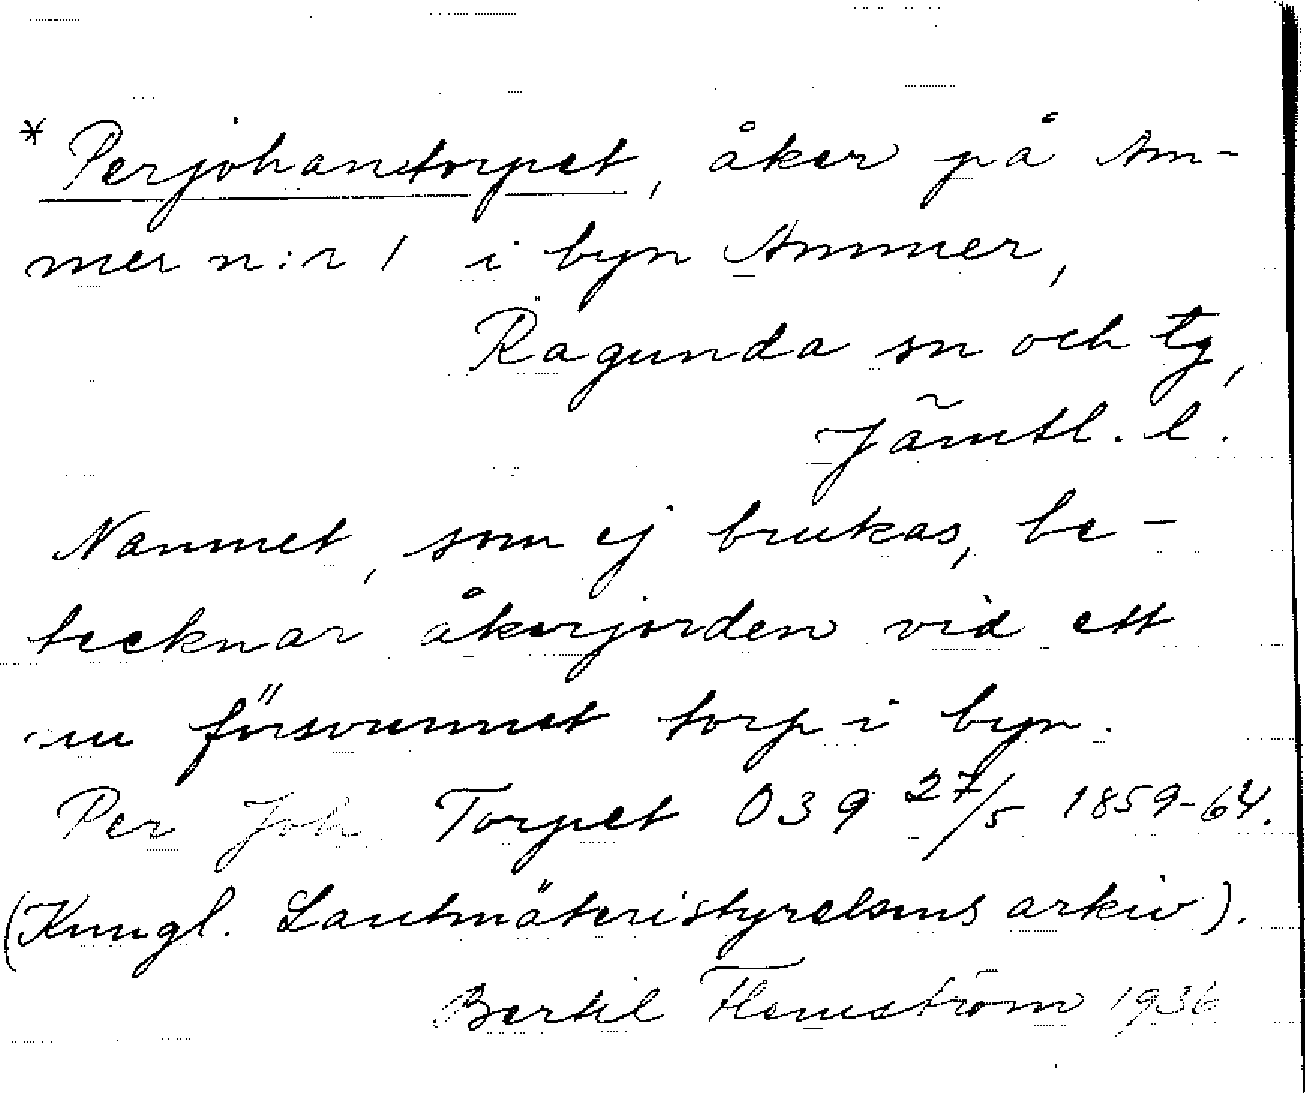 * Perjohantorpet, åker på Am-
mer n:r 1 i byn Ammer,
Ragunda sn och tg,
Jämtl. l.
Namnet, som ej brukas, be-
tecknar åkerjorden vid ett
nu försvunnet torp i byn.
Per Joh Torpet 039 27/5 1859-64.
(Kungl. Lantmäteristyrelsens arkiv).
Bertil Flemström 1936